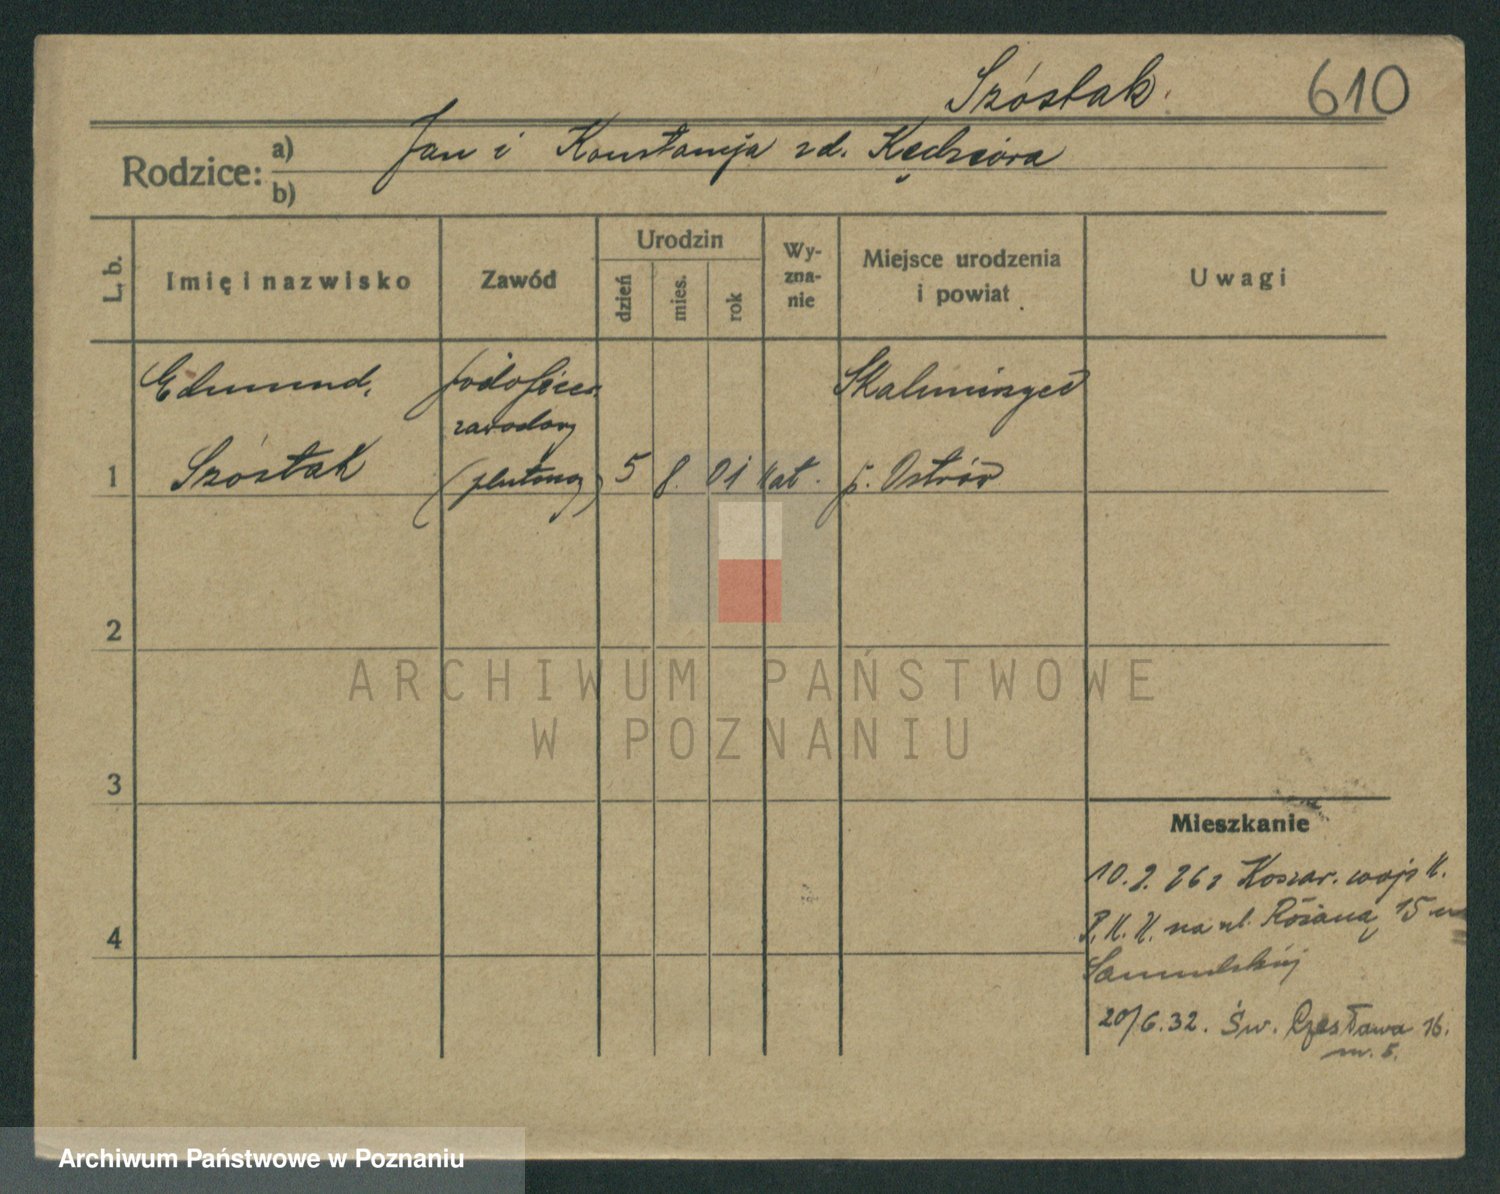 Szóstak. 610
Rodzice: a) Jan i Konstancja zd. Kędzióra
b)
L. b. Imię i nazwisko Zawód Urodzin Wy-zna-nie Miejsce urodzenia i powiat Uwagi
dzień mies. rok
Edmund, podoficer
zawodowy
1 Szóstak (plutonowy) 5 8. 01 kat. p. Ostrów
2
3
4
Mieszkanie
10. 2. 26 r Koszar. wojsk.
P. K. K. na ul. Różaną 15 m
20/6.32. Św. Czesława 16.
m. 5.
ARCHIWUM PAŃSTWOWE
W POZNANIU
Archiwum Państwowe w Poznaniu